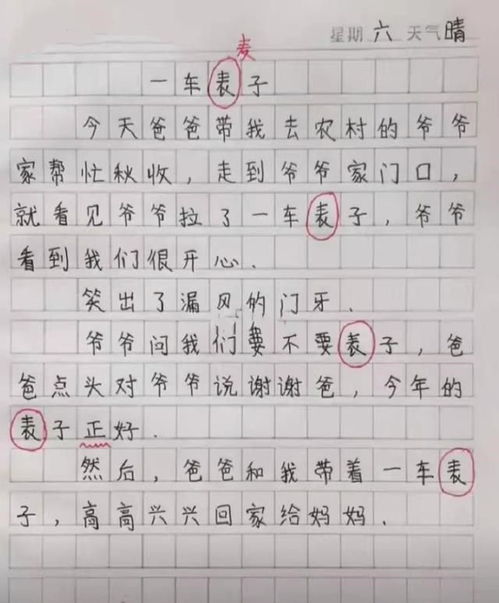 星期 六 天气 晴
麦
一车表子
今天爸爸带我去农村的爷爷
家帮忙秋收，走到爷爷家门口，
就看见爷爷拉了一车表子，爷爷
看到我们很开心.
笑出了漏风的门牙.
爷爷问我们要不要表子，爸
爸点头对爷爷说谢谢爸，今年的
表子正好.
然后，爸爸和我带着一车表
子，高高兴兴回家给妈妈.